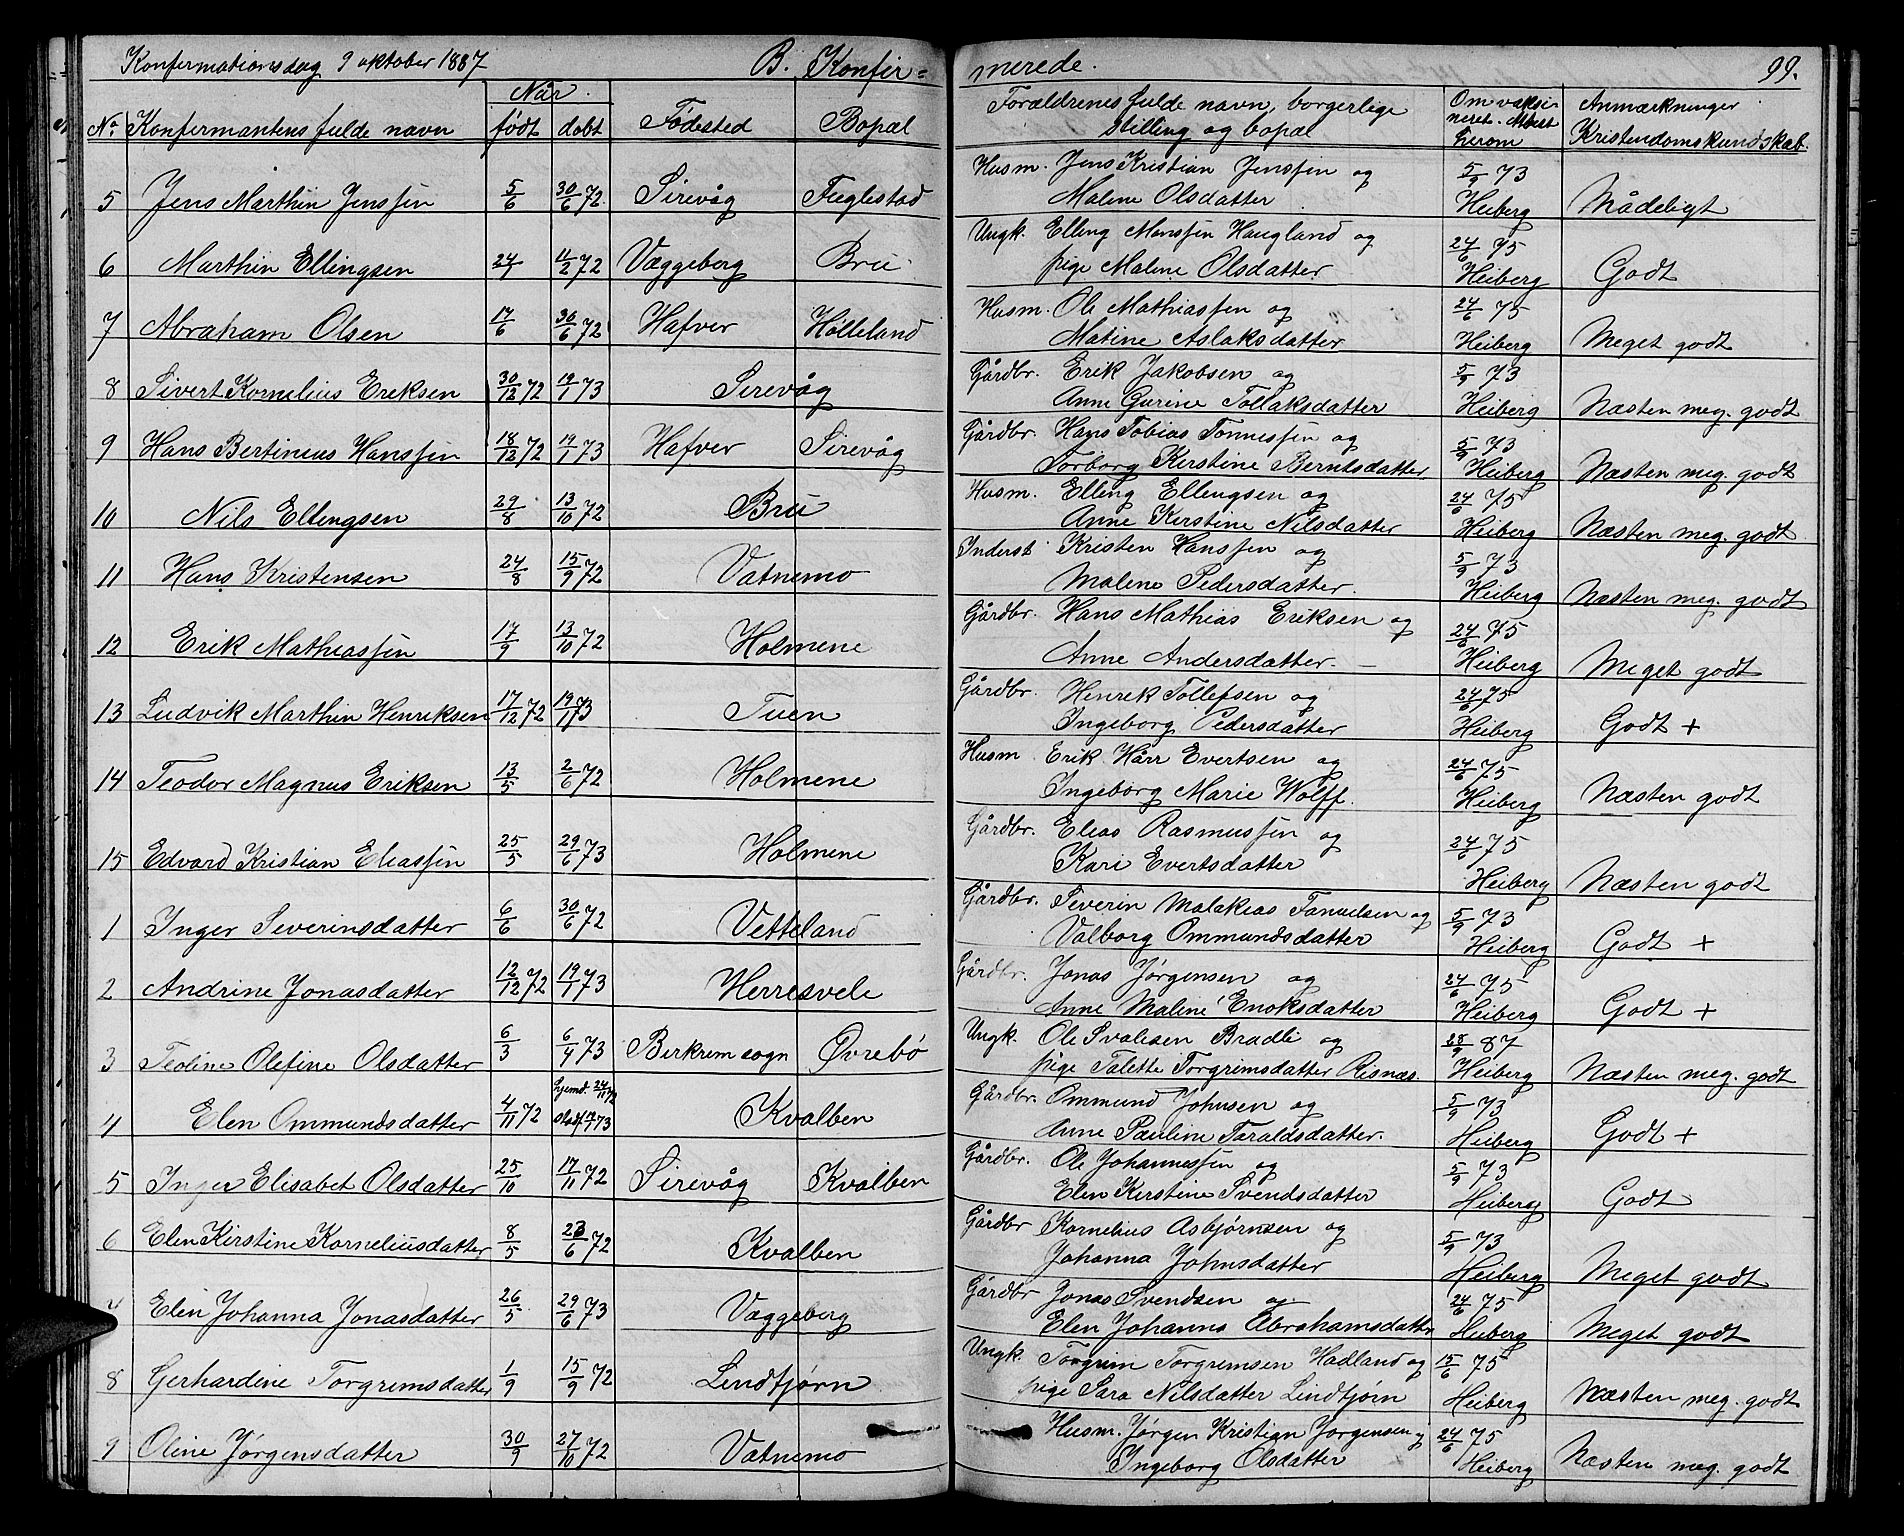 Konfermationsdag 9 oktober 1887 B. Konfir= merede. 99.
No Konfermantens fulde navn Når født døbt Fødested Bopæl Forældrenes fulde navn, borgerlige stilling og bopæl Om vaksineret. Attest herom Anmærkninger Kristendomskundskab.
5 Jens Marthin Jenssen 5/6 30/6 72 Sirevåg Fuglestad Husm. Jens Kristian Jenssen og 5/9 73
Malene Olsdatter Heiberg Mådeligt
6 Marthin Ellingsen 24/1 11/2 72 Væggeberg Bru Ungk. Elling Monssen Haugland og 24/6 75
pige Malene Olsdatter Heiberg Godt
7 Abraham Olsen 17/6 30/6 72 Hafver Hølleland Husm. Ole Mathiassen og 24/6 75
Matine Aslaksdatter Heiberg Meget godt
8 Sivert Kornelius Eriksen 30/12 72 19/1 73 Sirevåg Gårdbr. Erik Jakobsen og 5/9 73
Anne Gurine Tollaksdatter Heiberg Næsten meg. godt
9 Hans Bertinius Hanssen 18/12 72 19/1 73 Hafver Sirevåg Gårdbr. Hans Tobias Tonnessen og 5/9 73
Torborg Kerstine Berntsdatter Heiberg Næsten meg. godt
10 Nils Ellingsen 29/8 13/10 72 Bru Husm. Elling Ellingsen og 24/6 75
Anne Kerstine Nilsdatter Heiberg Næsten meg. godt
11 Hans Kristensen 24/8 15/9 72 Vatnemo Inderst Kristen Hanssen og 5/9 73
Malene Pedersdatter. Heiberg Næsten meg. godt
12 Erik Mathiassen 17/9 13/10 72 Holmene Gårdbr. Hans Mathias Eriksen og 24/6 75
Anne Andersdatter. Heiberg Meget godt
13 Ludvik Marthin Henriksen 17/12 72 19/1 73 Tuen Gårdbr. Henrik Tollefsen og 24/6 75
Ingeborg Pedersdatter Heiberg Godt +
14 Teodor Magnus Eriksen 13/5 2/6 72 Holmene Husm Erik Hårr Evertsen og 24/6 75
Ingeborg Marie Wolff. Heiberg Næsten godt
15 Edvard Kristian Eliassen 25/5 29/6 73 Holmene Gårdbr. Elias Rasmussen og 24/6 75
Kari Evertsdatter Heiberg Næsten godt
1 Inger Severinsdatter 6/6 30/6 72 Vetteland Gårdbr. Severin Malakias Tanielsen og 5/9 73
Valborg Ommundsdatter Heiberg Godt +
2 Andrine Jonasdatter 12/12 72 19/1 73 Herresvele Gårdbr. Jonas Jørgensen og 24/6 75
Anne Malene Enoksdatter Heiberg Godt +
3 Teoline Olefine Olsdatter 6/3 6/4 73 Birkrem sogn Øvrebø Ungk. Ole Svalesen Bradli og 28/9 87
pige Talette Torgrimsdatter Risnæs. Heiberg Næsten meg. godt
4 Elen Ommundsdatter 4/11 72 hjemd. 24/11 72 stadf. 73 Kvalben Gårdbr. Ommund Johnsen og 5/9 73
Anne Pauline Taraldsdatter. Heiberg Godt +
5 Inger Elisabet Olsdatter 25/10 17/11 72 Sirevåg Kvalben Gårdbr. Ole Johannessen og 5/9 73
Elen Kerstine Svendsdatter Heiberg Godt
6 Elen Kirstine Korneliusdatter 8/5 23/6 72 Kvalben Gårdbr Kornelius Asbjørnsen og 5/9 73
Johanna Johnsdatter Heiberg Meget godt
7 Elen Johanna Jonasdatter 26/5 29/6 73 Væggeberg Gårdbr Jonas Svendsen og 24/6 75
Elen Johanna Abrahamsdatter Heiberg Meget godt
8 Gerhardine Torgrimsdatter 1/9 15/9 72 Lindtjørn Ungk. Torgrim Torgrimsen Hadland og 15/6 75
pige Sara Nilsdatter Lindtjørn Heiberg Næsten meg. godt
9 Oline Jørgensdatter 30/9 27/10 72 Vatnemo Husm. Jørgen Kristian Jørgensen og 24/6 75
Ingeborg Olsdatter Heiberg Næsten meg. godt